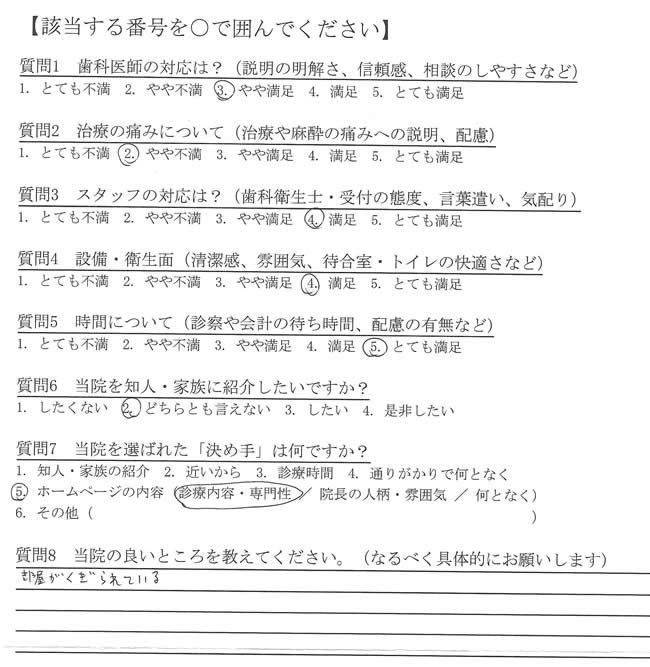 【該当する番号を〇で囲んでください】
質問1 歯科医師の対応は？（説明の明解さ、信頼感、相談のしやすさなど）
1. とても不満 2. やや不満 3. やや満足 4. 満足 5. とても満足
質問2 治療の痛みについて（治療や麻酔の痛みへの説明、配慮）
1. とても不満 2. やや不満 3. やや満足 4. 満足 5. とても満足
質問3 スタッフの対応は？（歯科衛生士・受付の態度、言葉遣い、気配り）
1. とても不満 2. やや不満 3. やや満足 4. 満足 5. とても満足
質問4 設備・衛生面（清潔感、雰囲気、待合室・トイレの快適さなど）
1. とても不満 2. やや不満 3. やや満足 4. 満足 5. とても満足
質問5 時間について（診察や会計の待ち時間、配慮の有無など）
1. とても不満 2. やや不満 3. やや満足 4. 満足 5. とても満足
質問6 当院を知人・家族に紹介したいですか？
1. したくない 2. どちらとも言えない 3. したい 4. 是非したい
質問7 当院を選ばれた「決め手」は何ですか？
1. 知人・家族の紹介 2. 近いから 3. 診療時間 4. 通りがかりで何となく
5. ホームページの内容（診療内容・専門性 ／ 院長の人柄・雰囲気 ／ 何となく）
6. その他（ ）
質問8 当院の良いところを教えてください。（なるべく具体的にお願いします）
部屋がくぎられている